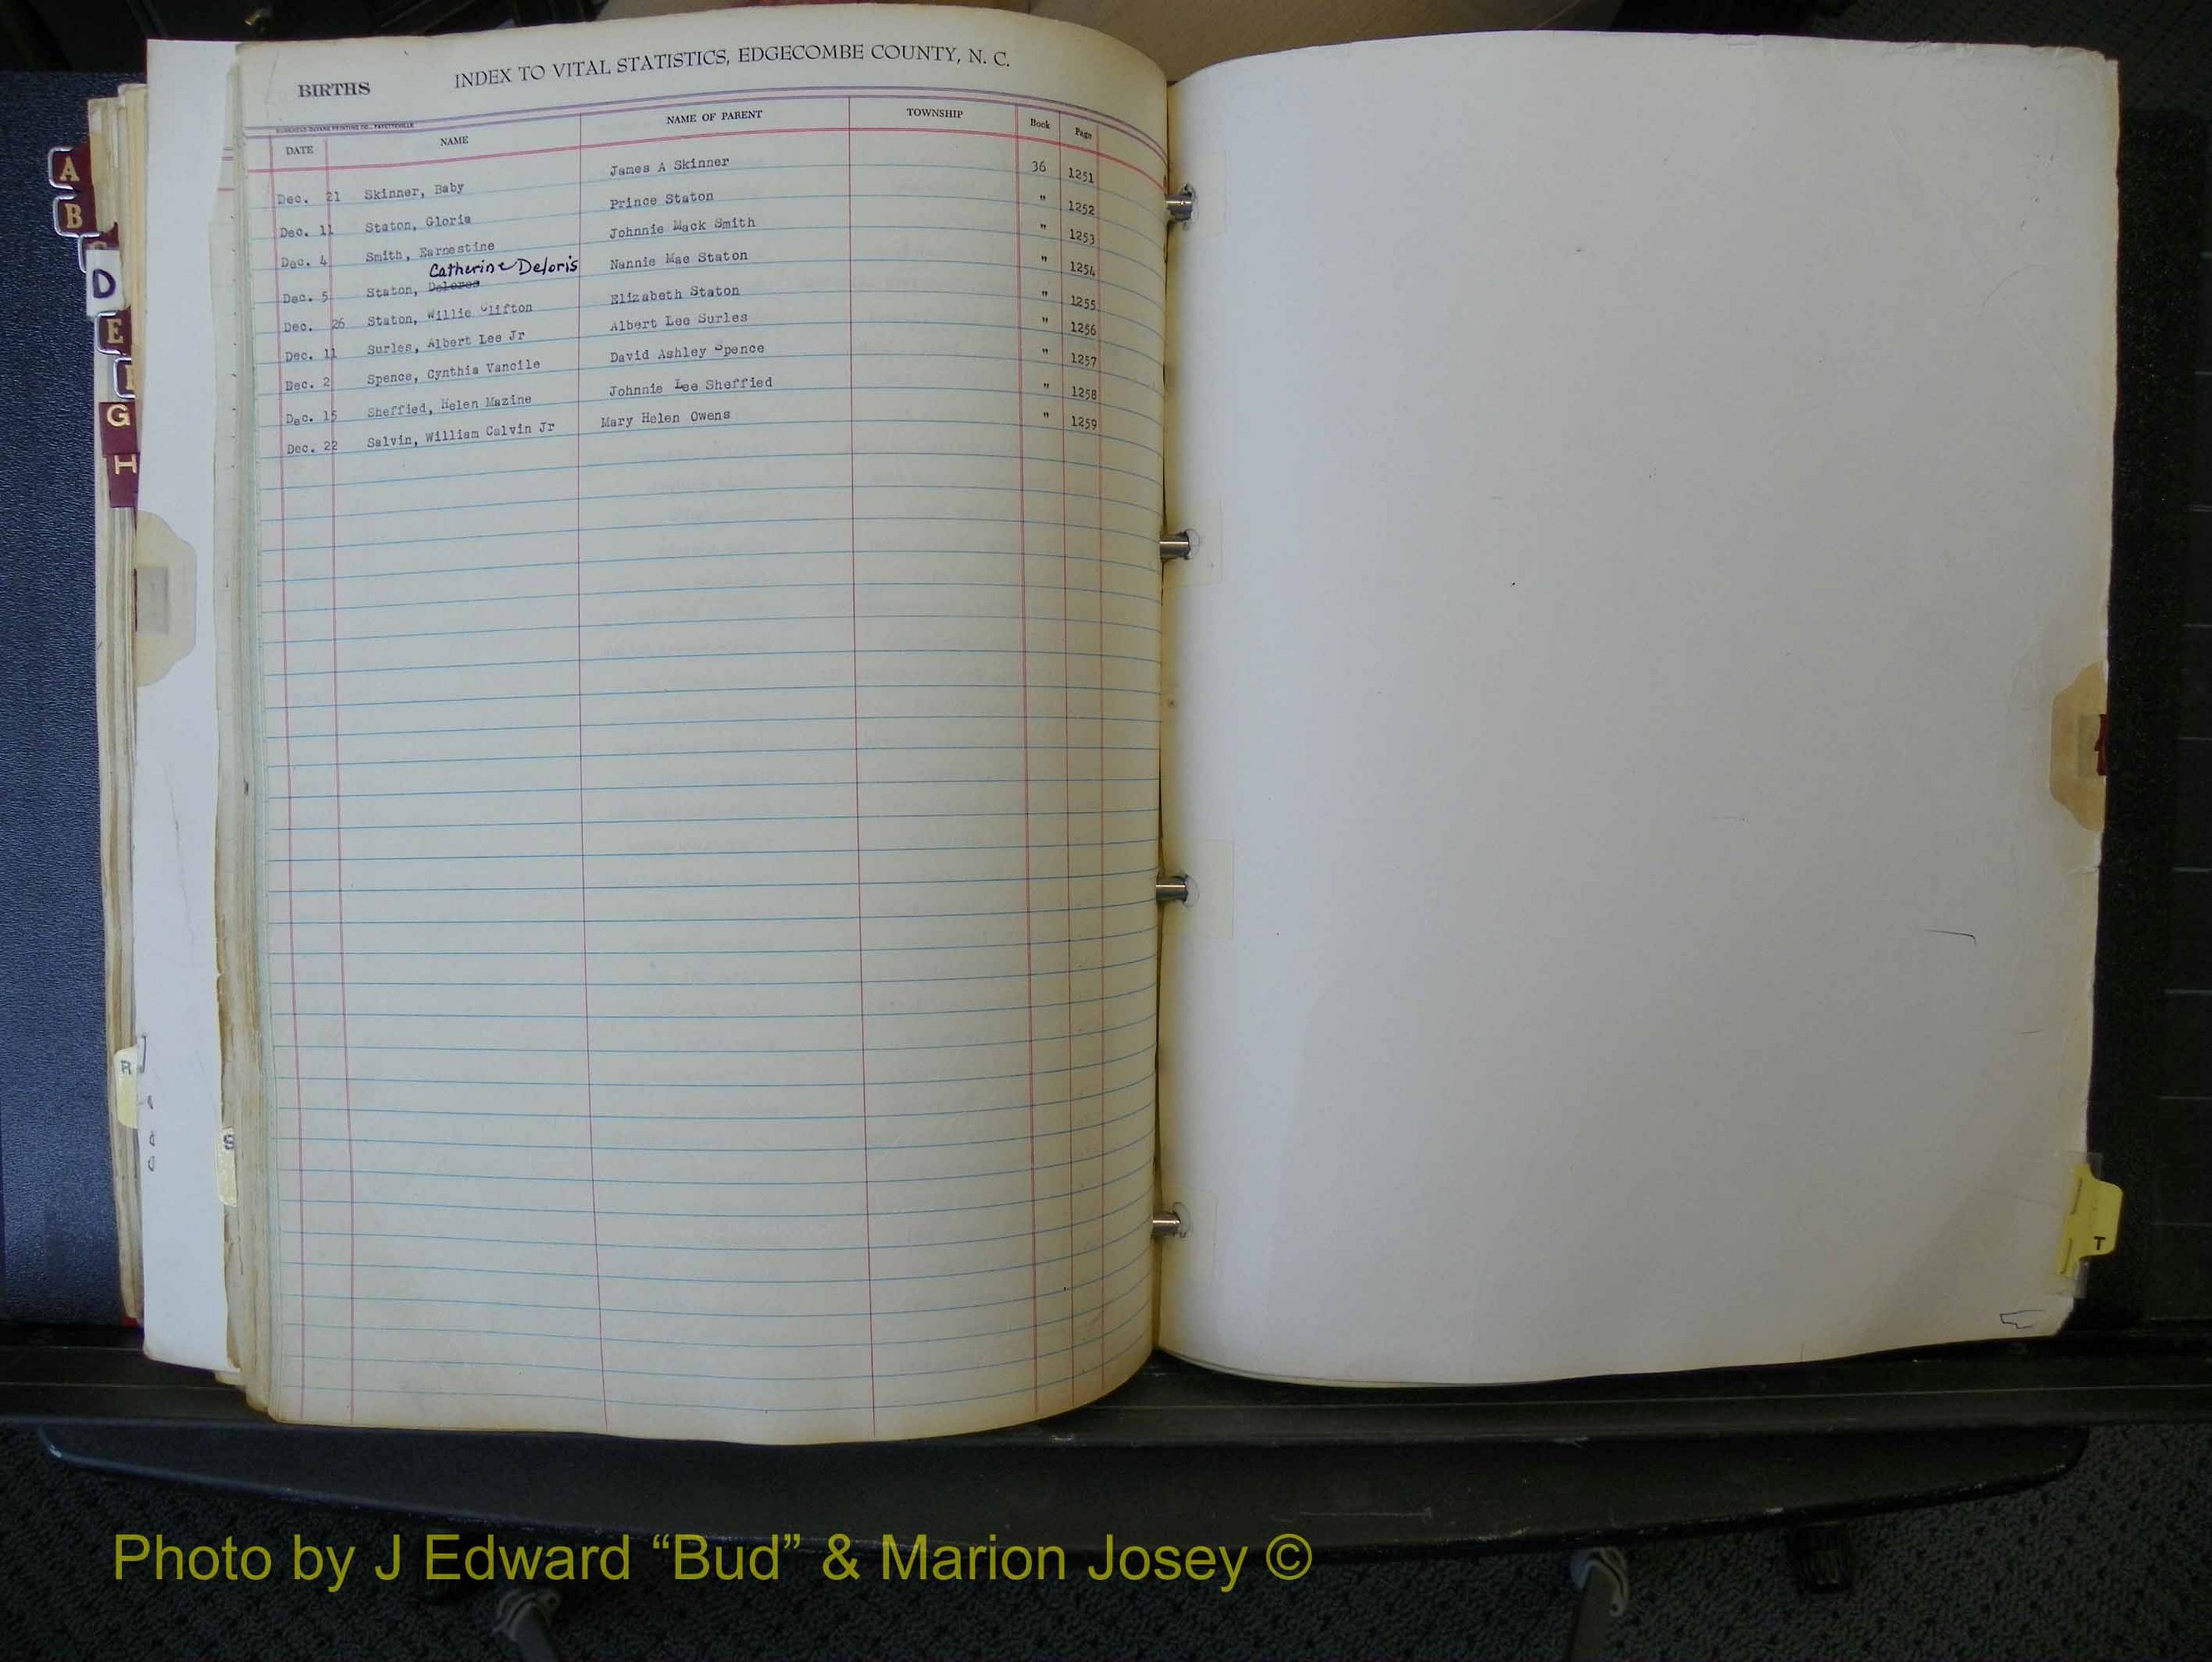 BIRTHS INDEX TO VITAL STATISTICS, EDGECOMBE COUNTY, N. C.
DATE NAME NAME OF PARENT TOWNSHIP Book Page
Dec. 21 Skinner, Baby James A Skinner 36 1251
Dec. 11 Staton, Gloria Prince Staton " 1252
Dec. 4 Smith, Earnestine Johnnie Mack Smith " 1253
Catherine Deloris
Dec. 5 Staton, Delores Nannie Mae Staton " 1254
Dec. 26 Staton, Willie Clifton Elizabeth Staton " 1255
Dec. 11 Surles, Albert Lee Jr Albert Lee Surles " 1256
Dec. 2 Spence, Cynthia Vancile David Ashley Spence " 1257
Dec. 15 Sheffied, Helen Mazine Johnnie Lee Sheffied " 1258
Dec. 22 Salvin, William Calvin Jr Mary Helen Owens " 1259
A
B
D
E
G
H
R
S
T
Photo by J Edward “Bud” & Marion Josey ©